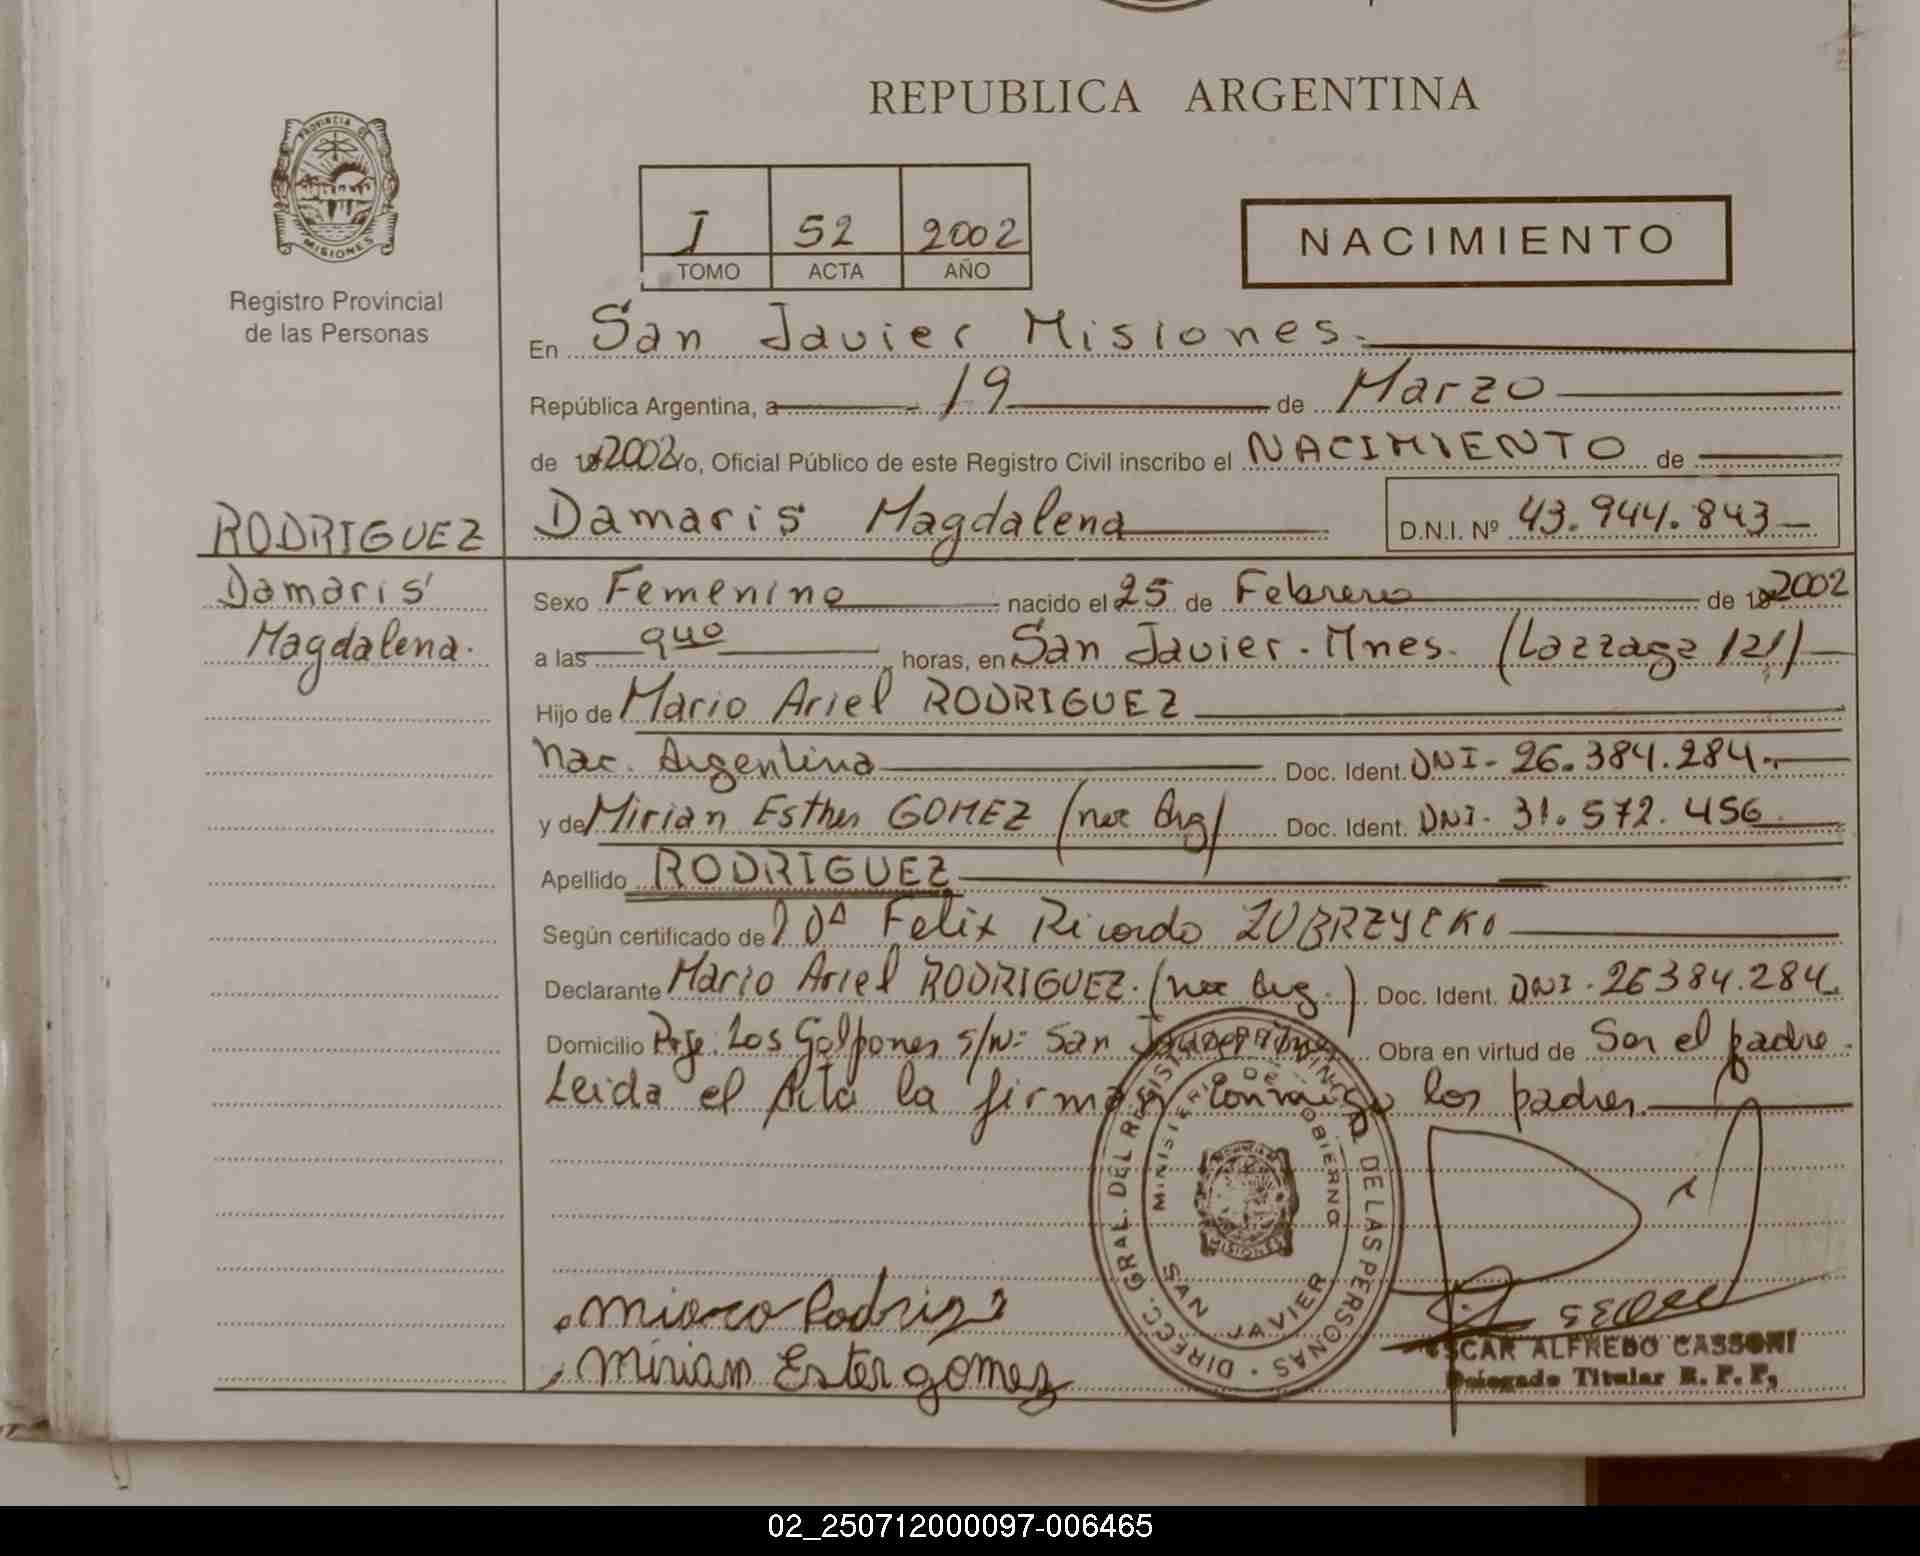 REPUBLICA ARGENTINA
PROVINCIA DE
MISIONES
Registro Provincial
de las Personas
I 52 2002
TOMO ACTA AÑO
NACIMIENTO
En San Javier Misiones.
República Argentina, a 19 de Marzo
de 2002 yo, Oficial Público de este Registro Civil inscribo el NACIMIENTO de
RODRIGUEZ
Damaris Magdalena D.N.I. Nº 43.944.843
Damaris
Magdalena.
Sexo Femenino nacido el 25 de Febrero de 2002
a las horas, en San Javier. Mnes. (
Hijo de Mario Ariel RODRIGUEZ
Nac. Argentina Doc. Ident. DNI- 26.384.284.
y de Mirian Esther GOMEZ (nac Arg) Doc. Ident. DNI. 31.572.456
Apellido RODRIGUEZ
Según certificado de Felix Ricardo ZUBRZYCKI
Declarante Mario Ariel RODRIGUEZ. (nac Arg.) Doc. Ident. DNI. 26384.284.
Domicilio Pje. Los Galpones s/nº San Javier Mnes Obra en virtud de Ser el padre.
Leida el Acta la firman conmigo los padres.
DIRECC. GRAL. DEL REGISTRO PROVINCIAL DE LAS PERSONAS
MINISTERIO DE GOBIERNO
MISIONES
SAN JAVIER
Mirian Ester gomez
OSCAR ALFREDO CASSONI
Delegado Titular R. P. P,
02_250712000097-006465